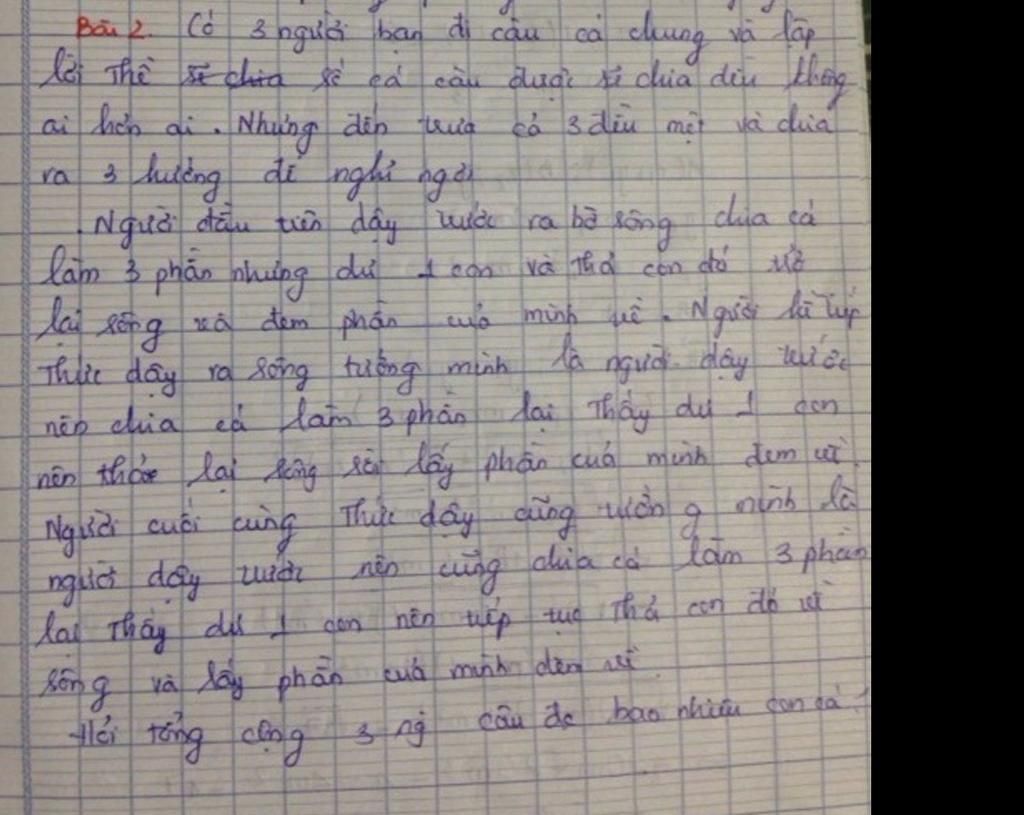 Bài 2. Có 3 người bạn đi câu cá chung và lập
lời thề sẽ chia số cá câu được sẽ chia đều không
ai hơn ai. Nhưng đến trưa cả 3 đều mệt và chia
ra 3 hướng để nghỉ ngơi
. Người đầu tiên dậy trước ra bờ sông chia cá
làm 3 phần nhưng dư 1 con và thả con đó về
lại sông và đem phần của mình về. Người kế tiếp
thức dậy ra sông tưởng mình là người dậy trước
nên chia cá làm 3 phần lại thấy dư 1 con
nên thả lại sông rồi lấy phần của mình đem về.
Người cuối cùng thức dậy cũng tưởng mình là
người dậy trước nên cũng chia cá làm 3 phần
lại thấy dư 1 con nên tiếp tục thả con đó về
sông và lấy phần của mình đem về.
Hỏi tổng cộng 3 ng câu đc bao nhiêu con cá?